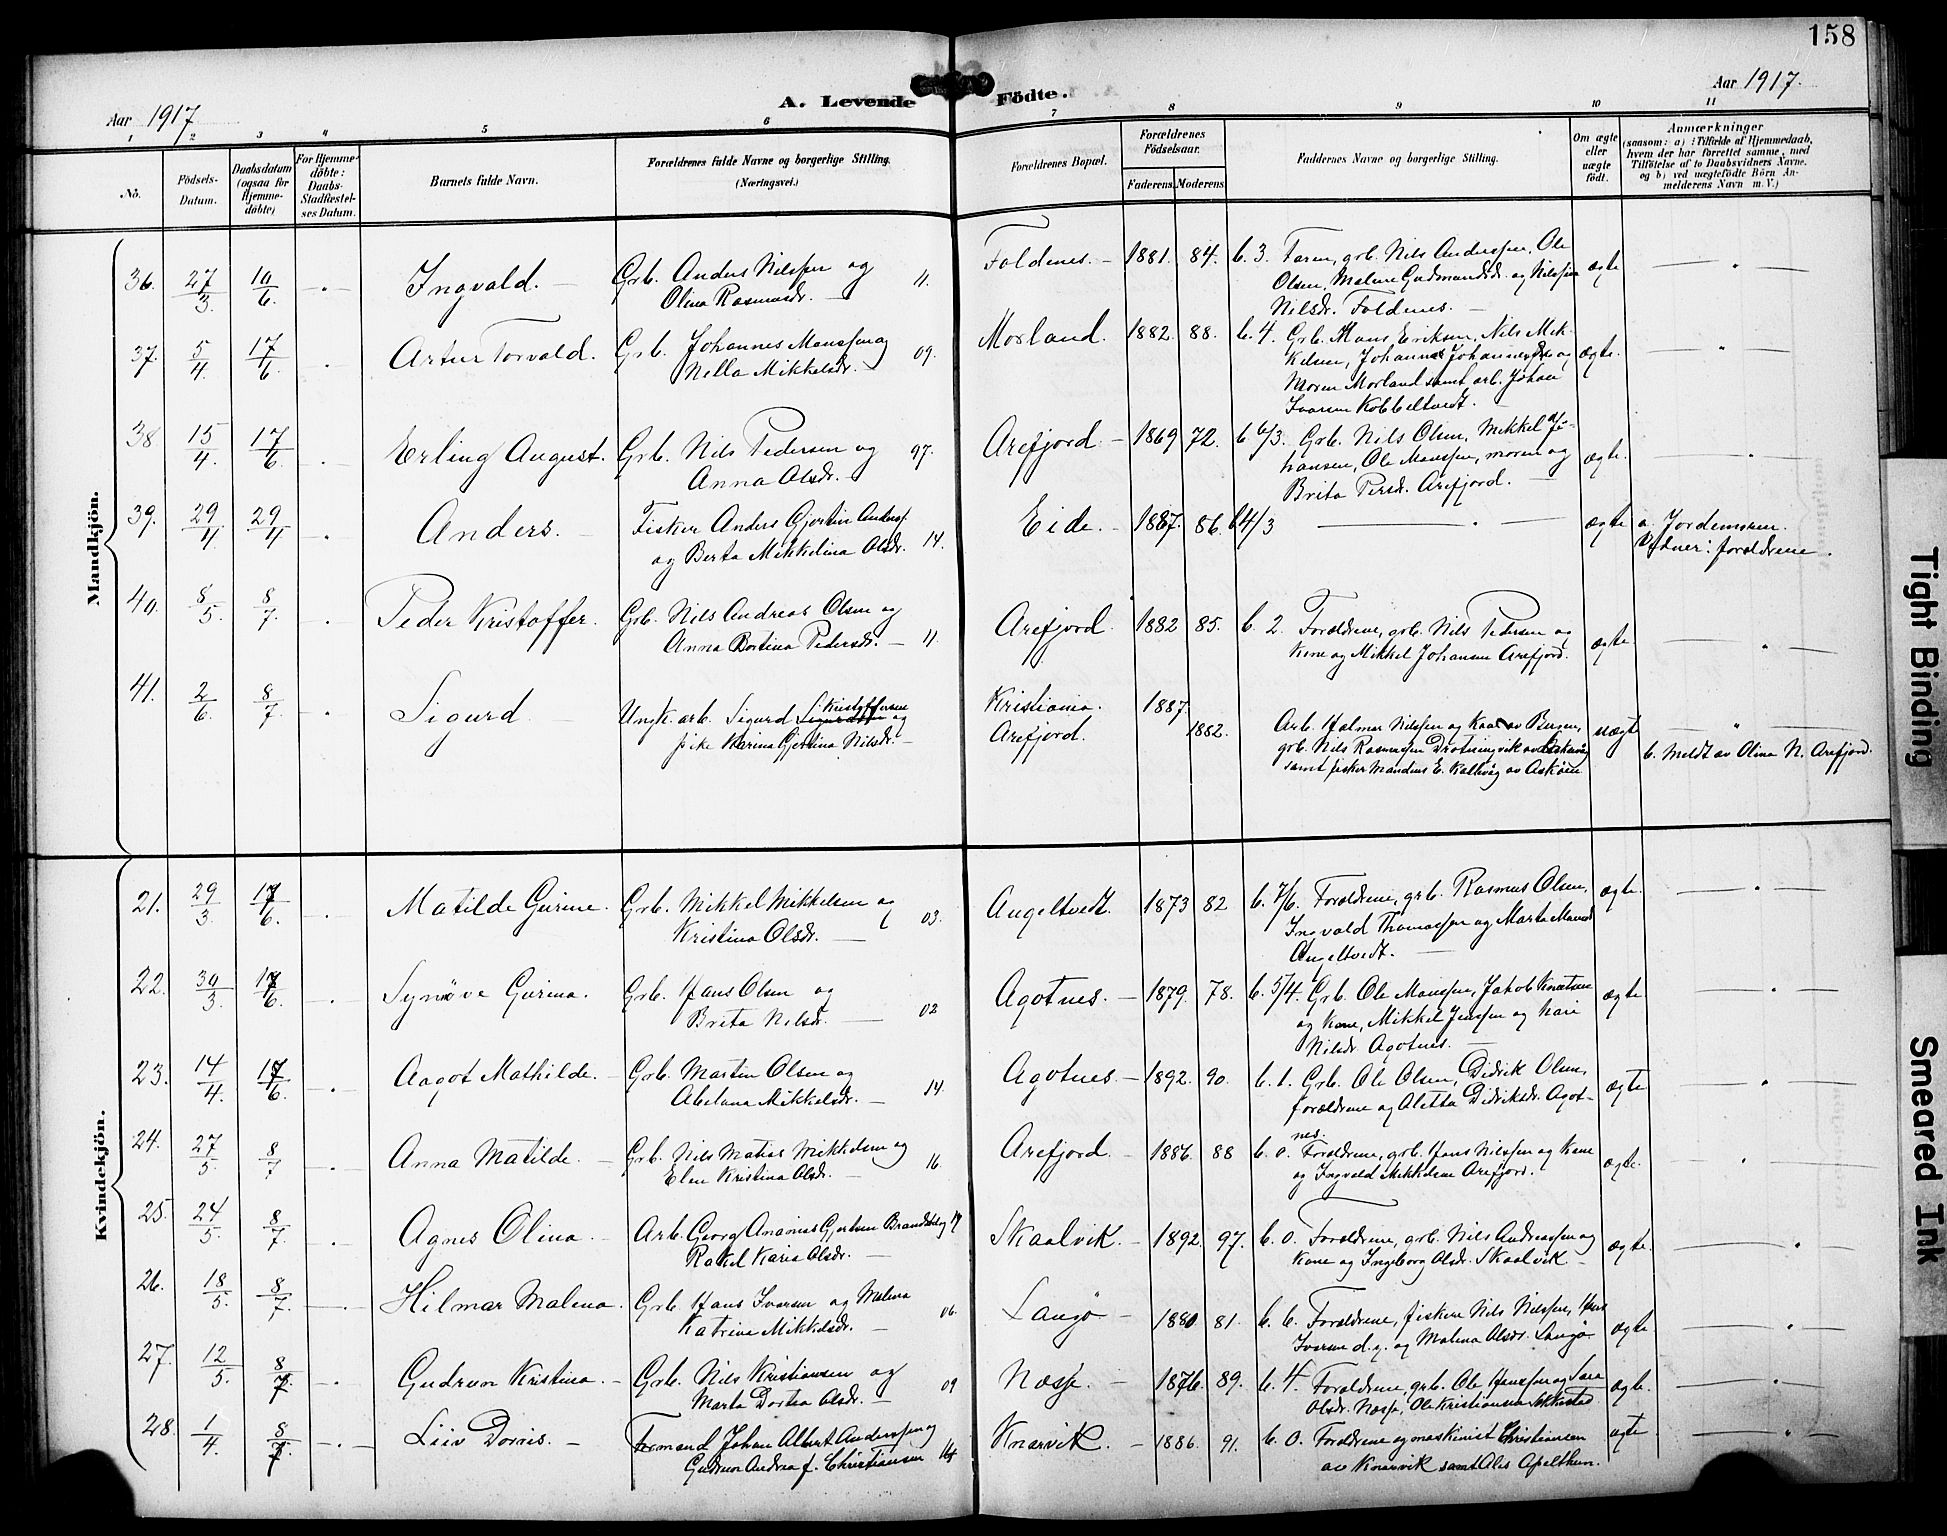 158
Aar 1917
A. Levende Födte.
Aar 1917.
1 2 3 4 5 6 7 8 9 10 11
No.
Födsels-
Datum.
Daabsdatum
(ogsaa for
Hjemme-
döbte)
For Hjemme-
döbte:
Daabs-
Stadfæstel-
ses Datum.
Barnets fulde Navn.
Forældrenes fulde Navne og borgerlige Stilling.
(Næringsvei.)
Forældrenes Bopæl.
Forældrenes
Födselsaar.
Faderens. Moderens.
Faddernes Navne og borgerlige Stilling.
Om ægte
eller
uægte
födt.
Anmærkninger
(saasom: a) i Tilfælde af Hjemmedaab,
hvem der har forrettet samme, med
Tilföielse af to Daabsvidners Navne.
og b) ved uægtefödte Börn An-
melderens Navn m. V.)
Mandkjön.
36. 27/3 10/6 Ingvald. Grb. Anders Nilssen og
Olina Rasmusdr. 11.
Foldenes. 1881. 84. b. 3. Faren, grb. Nils Anderssen, Ole
Olsen, Malene Gudmundsdr. og Nilssine
Nilsdr. Foldenes. ægte
37. 5/4 17/6 Artur Torvald. Grb. Johannes Monssen og
Nella Mikkelsdr. 09.
Morland. 1882. 88. b. 4. Grb. Hans Eriksen, Nils Mik-
kelsen, Johannes Johannesdr. og
Moren Morland samt arb. Johan
Ivarsen Kobbeltvedt. ægte.
38 15/4 17/6 Erling August. Grb. Nils Pedersen og
Anna Olsdr. 97.
Arefjord. 1869 72. b 6/3. Grb. Nils Olsen, Mikkel Jo-
hansen, Ole Monssen, moren og
Brita Persdr. Arefjord. ægte.
39. 29/4 29/4 Anders. Fisker Anders Gjertin Anderss.
og Berta Mikkelina Olsdr. 14.
Eide. 1887. 86. b 4/3 ægte a. Jordemoren.
Vidner: forældrene.
40. 8/5 8/7 Peder Kristoffer. Grb. Nils Andreas Olsen og
Anna Bertina Pedersdr. 11.
Arefjord. 1882 85. b. 2. Forældrene, grb. Nils Pedersen og
kone og Mikkel Johansen Arefjord. ægte
41. 2/6 8/7 Sigurd Ungk. arb. Sigurd Kristoffersen og
pike Karina Gjertina Nilsdr.
Kristiania. 1887.
Arefjord. 1882.
Arb. Halmar Nilssen og Kone av Bergen,
grb. Nils Rasmussen Drotningvik av
samt fisker Mandius E. Kallevåg av Askøen uægte
b. Meldt av Olina N. Arefjord.
Kvindekjön.
21. 29/3 17/6 Matilde Gurine. Grb. Mikkel Mikkelsen og
Kristina Olsdr. 03.
Angeltvedt. 1873 82 b. 7/6. Forældrene, grb. Rasmus Olsen,
Ingvald Thomassen og Marta Monsd.
Angeltvedt. ægte.
22. 30/3 17/6 Synöve Gurina. Grb. Hans Olsen og
Brita Nilsdr. 02
Agotnes. 1879. 78. b. 5/4. Grb. Ole Monssen, Jakob Knutsen
og kone, Mikkel Jenssen og Kari
Nilsdr. Agotnes. ægte
23. 14/4 17/6 Aagot Mathilde. Grb. Martin Olsen og
Abelona Mikkelsdr. 14.
Agotnes 1892. 90. b. 1. Grb. Ole Olsen, Didrik Olsen,
forældrene og Aletta Didriksdr. Agot-
nes. ægte
24. 27/5 8/7 Anna Matilde. Grb. Nils Matias Mikkelsen og
Elen Kristina Olsdr. 16.
Arefjord 1886. 88 b. 0. Forældrene, grb. Hans Nilssen og kone
og Ingvald Mikkelsen Arefjord. ægte.
25. 24/5 8/7 Agnes Olina. Arb. Georg Ananias Gjertsen Brandal og
Rakel Karia Olsdr. 17
Skaalvik. 1892. 97. b. 0. Forældrene, grb. Nils Andreassen og
kone og Ingeborg Olsdr. Skaalvik ægte.
26. 18/5. 8/7. Hilmar Malena. Grb. Hans Ivarsen og Malena
Katrine Mikkelsdr. 06.
Langø 1880 81. b. 6. Forældrene, fiskere Nils Nilssen, Hans
Ivarsen d. y. og Malena Olsdr. Langø ægte.
27. 12/5. 8/7. Gudrun Kristina. Grb. Nils Kristiansen og
Marta Dortea Olsdr. 09
Næsse. 1876. 89. b. 4. Forældrene, grb. Ole Hanssen og Sara
Olsdr. Næsse, Ole Kristiansen ægte.
28. 1/4 8/7 Liiv Dorris. Formand Johan Albert Anderssen og
Gudrun Andrea f. Christiansen 14
Knarvik. 1886. 91. b. 0. Forældrene og maskinist Christiansen
av Knarvik samt Alis Apelthun. ægte
Tight Binding
Smeared Ink